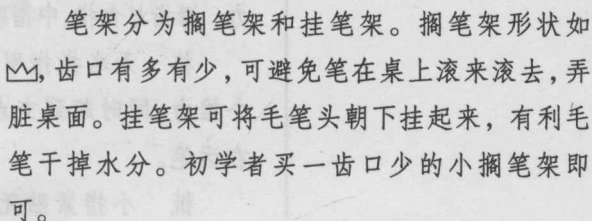 笔架分为搁笔架和挂笔架。搁笔架形状如
，齿口有多有少，可避免笔在桌上滚来滚去，弄
脏桌面。挂笔架可将毛笔头朝下挂起来，有利毛
笔干掉水分。初学者买一齿口少的小搁笔架即
可。